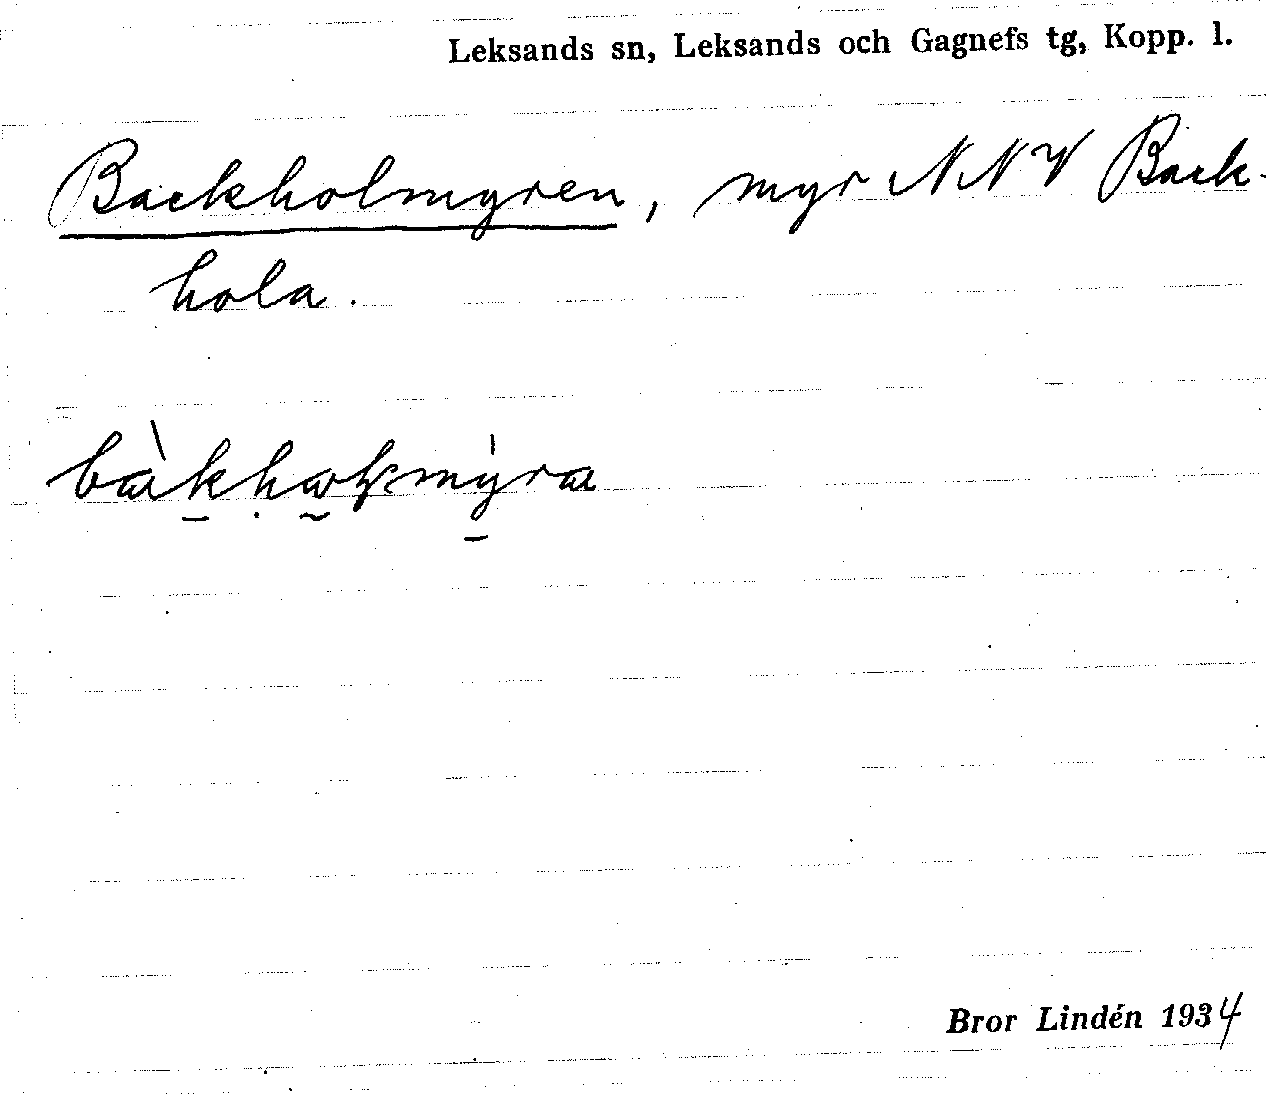 Leksands sn, Leksands och Gagnefs tg, Kopp. l.
Backholmyren, myr NNV Back-
hola.
Bror Lindén 1934